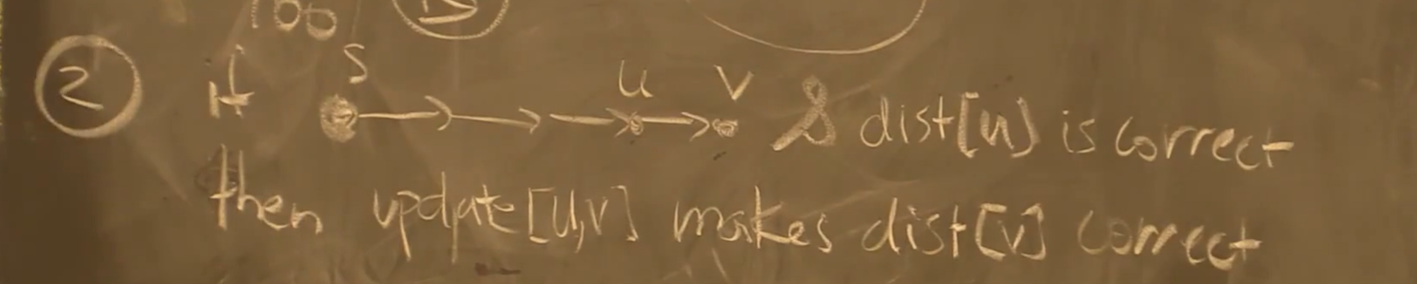 ② If s u v & dist[u] is correct
then update[u,v] makes dist[v] correct